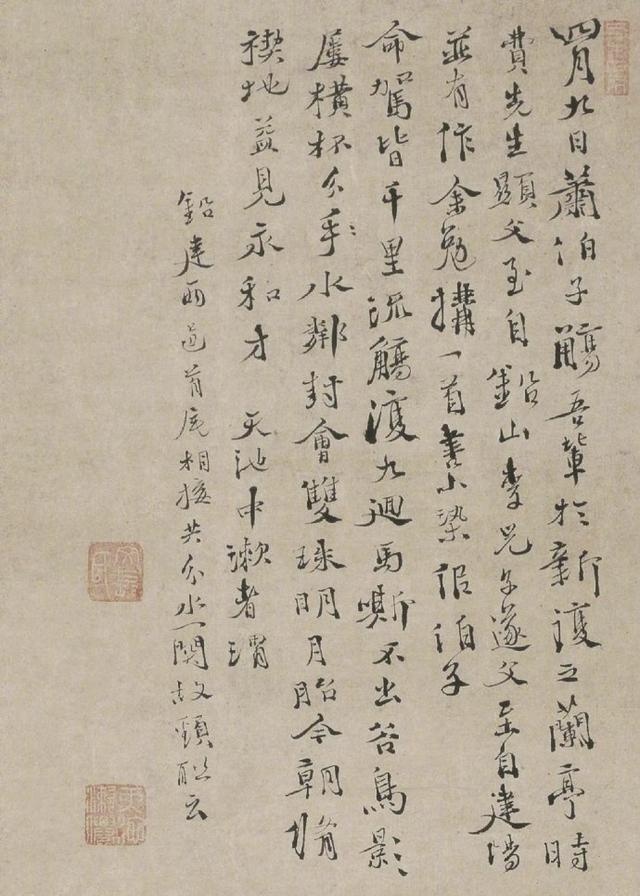 四月九日蕭伯子觴吾輩於新復之蘭亭時
費先生顯父至自鉛山李兄子遂父至自建陽
並有作余勉搆一首書小染佀伯子
命駕皆千里流觴復九迴馬嘶不出谷鳥影
屢橫杯分手水鄰封會雙珠明月胎今朝脩
禊地益見永和才 天池中漱者渭
鉛建兩邑首尾相接共分水一關故頸聯云